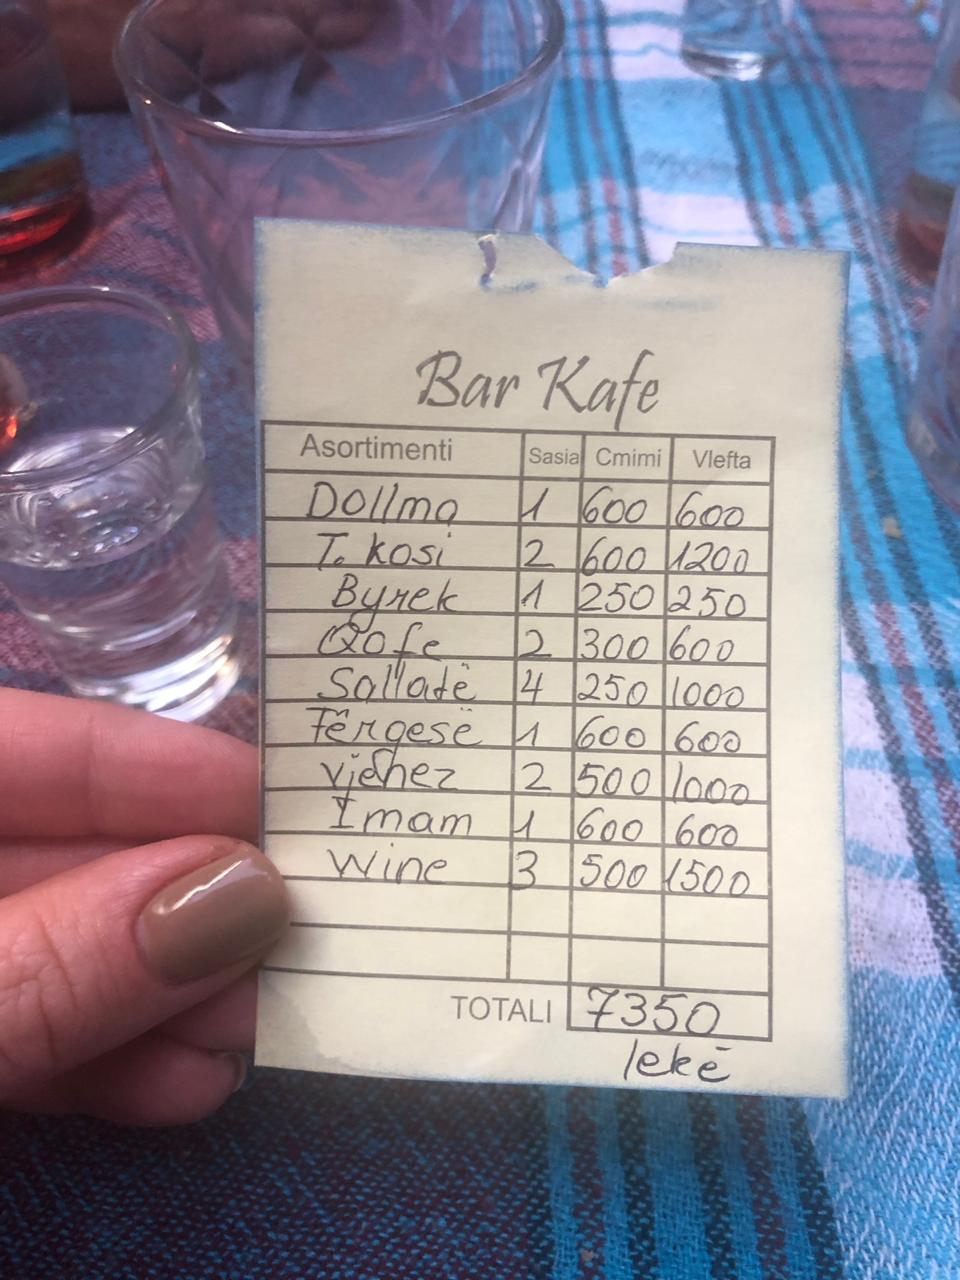 Bar Kafe
Asortimenti Sasia Cmimi Vlefta
Dollma 1 600 600
T. kosi 2 600 1200
Byrek 1 250 250
Qofe 2 300 600
Sallatë 4 250 1000
Fërgesë 1 600 600
2 500 1000
Imam 1 600 600
Wine 3 500 1500
TOTALI 7350
lekë